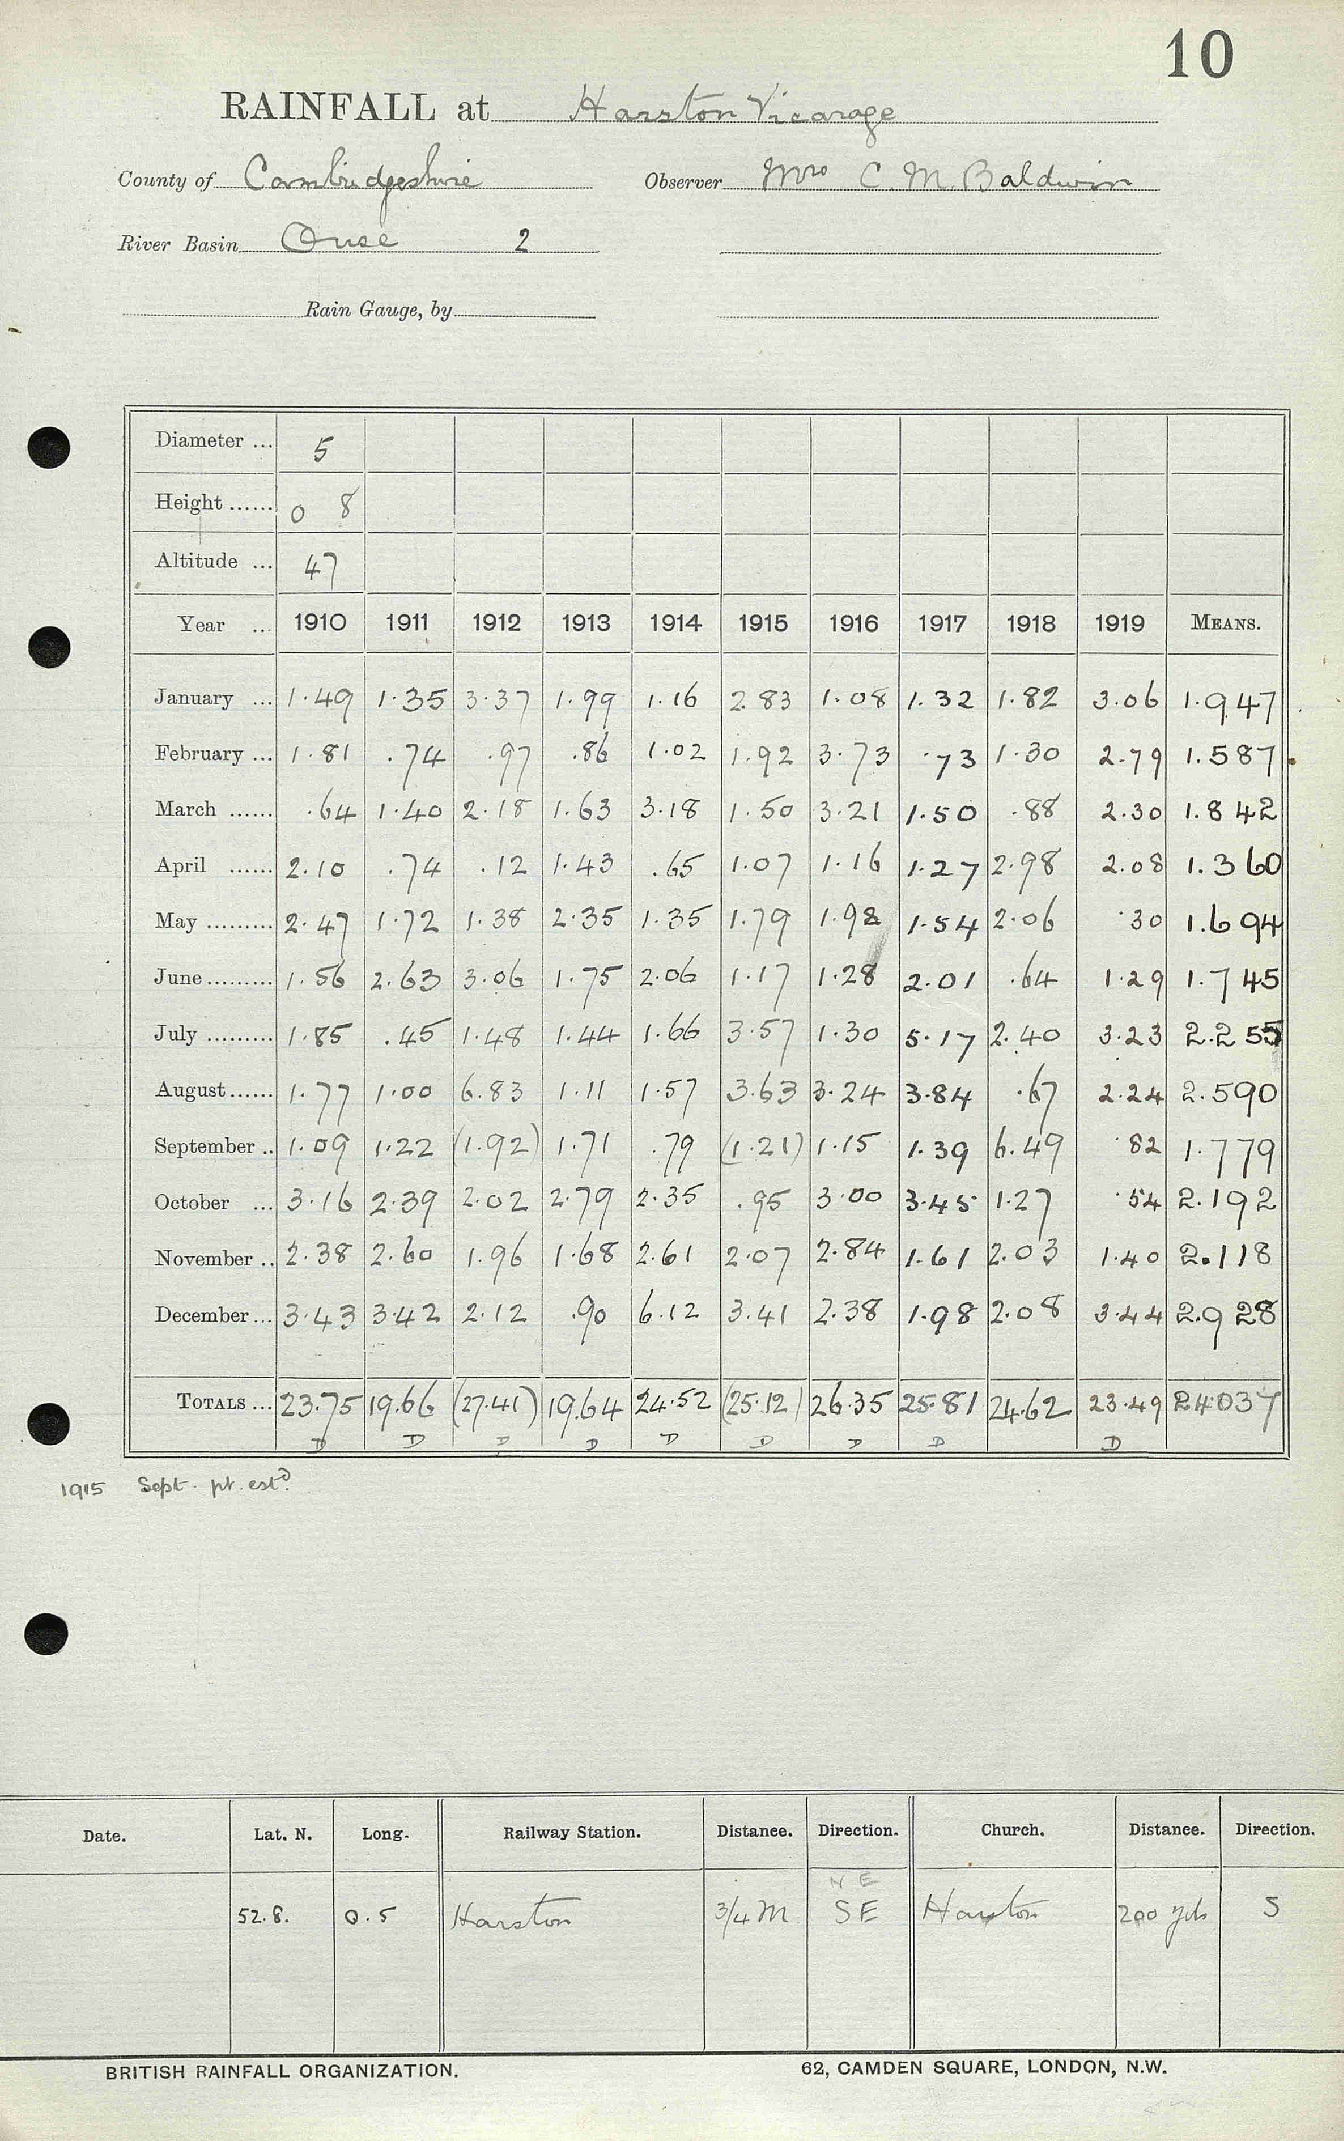 10
RAINFALL at Harston Vicarage
County of Cambridgeshire Observer Mrs C. M. Baldwin
River Basin Ouse 2
Rain Gauge, by
Diameter ... 5
Height ...... 0 8
Altitude ... 47
Year ... 1910 1911 1912 1913 1914 1915 1916 1917 1918 1919 MEANS.
January ... 1.49 1.35 3.37 1.99 1.16 2.83 1.08 1.32 1.82 3.06 1.947
February ... 1.81 .74 .97 .86 1.02 1.92 3.73 .73 1.30 2.79 1.587
March ...... .64 1.40 2.18 1.63 3.18 1.50 3.21 1.50 .88 2.30 1.842
April ...... 2.10 .74 .12 1.43 .65 1.07 1.16 1.27 2.98 2.08 1.360
May ......... 2.47 1.72 1.38 2.35 1.35 1.79 1.98 1.54 2.06 .30 1.694
June ......... 1.56 2.63 3.06 1.75 2.06 1.17 1.28 2.01 .64 1.29 1.745
July ......... 1.85 .45 1.48 1.44 1.66 3.57 1.30 5.17 2.40 3.23 2.255
August ...... 1.77 1.00 6.83 1.11 1.57 3.63 3.24 3.84 .67 2.24 2.590
September .. 1.09 1.22 (1.92) 1.71 .79 (1.21) 1.15 1.39 6.49 .82 1.779
October ... 3.16 2.39 2.02 2.79 2.35 .95 3.00 3.45 1.27 .54 2.192
November .. 2.38 2.60 1.96 1.68 2.61 2.07 2.84 1.61 2.03 1.40 2.118
December ... 3.43 3.42 2.12 .90 6.12 3.41 2.38 1.98 2.08 3.44 2.928
TOTALS ... 23.75 19.66 (27.41) 19.64 24.52 (25.12) 26.35 25.81 24.62 23.49 24.037
D D D D D D D D D
1915 Sept. pt. estd.
Date. Lat. N. Long. Railway Station. Distance. Direction. Church. Distance. Direction.
N E
52.8. 0.5 Harston 3/4 M SE Harston 200 yds S
BRITISH RAINFALL ORGANIZATION. 62, CAMDEN SQUARE, LONDON, N.W.